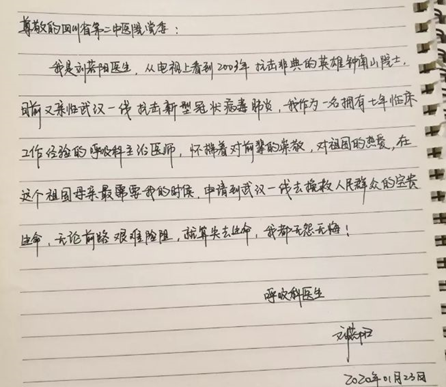 尊敬的四川省第二中医院党委：
我是刘蓉阳医生，从电视上看到2003年抗击非典的英雄钟南山院士，
目前又亲临武汉一线抗击新型冠状病毒肺炎，我作为一名拥有七年临床
工作经验的呼吸科主治医师，怀揣着对前辈的崇敬，对祖国的热爱，在
这个祖国母亲最需要我的时候，申请到武汉一线去挽救人民群众的宝贵
生命，无论前路艰难险阻，就算失去生命，我都无怨无悔！
呼吸科医生
2020年01月23日